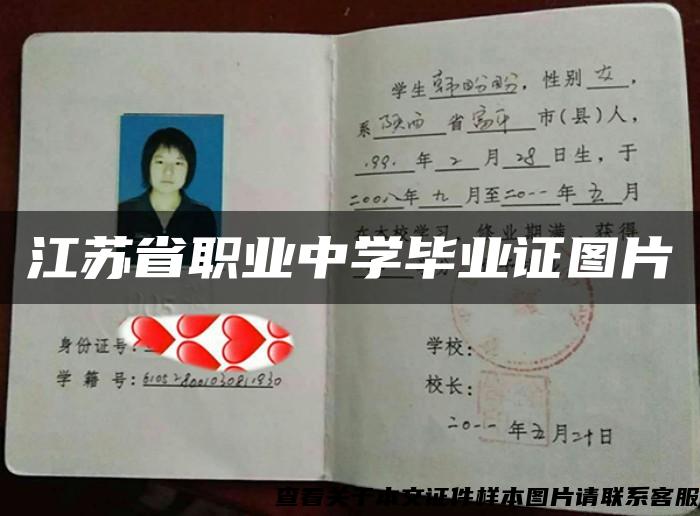 学生韩盼盼，性别女，
系陕西省富平市(县)人，
1991年2月28日生，于
二00八年九月至二0一一年五月
在本校学习，修业期满，获得
江苏省职业中学毕业证图片
身份证号：
学 籍 号：
学校：
校长：
二0一一年五月二十日
查看关于本文证件样本图片请联系客服